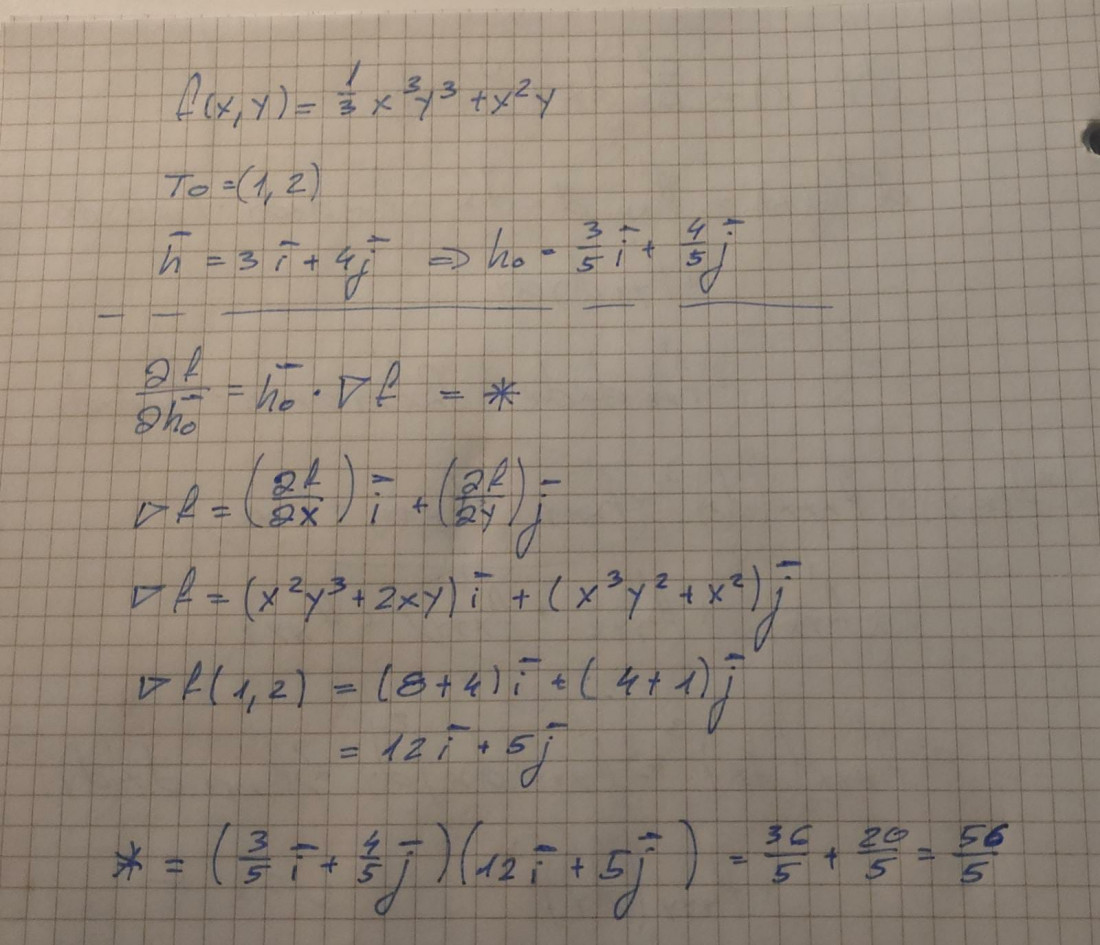 f(x,y) = 1/3 x³y³ + x²y
T₀ = (1,2)
h̄ = 3ī + 4j̄ ⇒ h₀ = 3/5 ī + 4/5 j̄
∂f/∂h̄₀ = h̄₀ · ∇f = *
∇f = (∂f/∂x) ī + (∂f/∂y) j̄
∇f = (x²y³ + 2xy) ī + (x³y² + x²) j̄
∇f(1,2) = (8+4) ī + (4+1) j̄
= 12ī + 5j̄
* = (3/5 ī + 4/5 j̄)(12ī + 5j̄) = 36/5 + 20/5 = 56/5